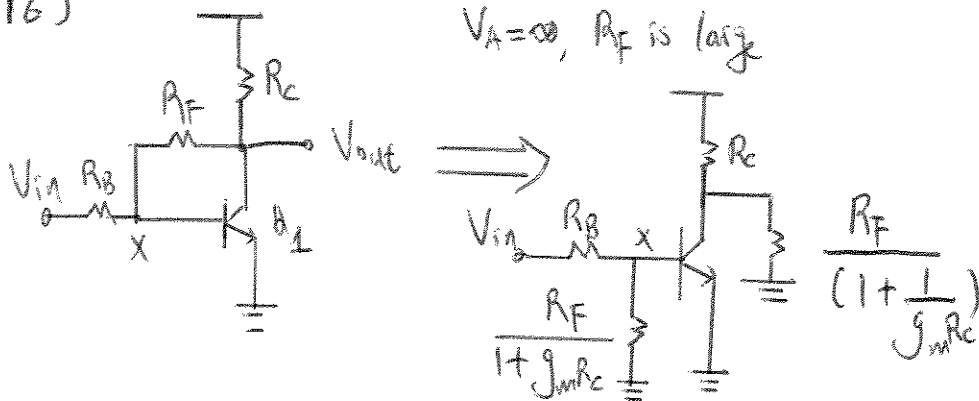 16)
V_A = ∞, R_F is larg
R_C
R_F
V_out
V_in R_B
X
Q_1
⟹
R_C
V_in R_B X
R_F / (1 + g_m R_C)
R_F / (1 + 1 / (g_m R_C))